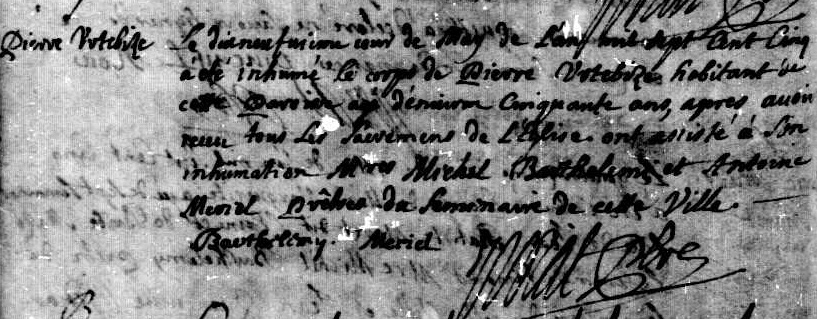 Pierre Vrtebize
Le dixneufieme iour de May de L'an mil sept Cent Cinq
a eté inhumé Le corps de Pierre Vrtebize habitant de
cette Paroisse agé d'environ Cinquante ans, apres auoir
receu tous Les Sacremens de L'Eglise. ont assisté à Son
inhumation Mres Michel Barthelemy et Antoine
Meriel Prêtres du Seminaire de cette Ville.
Barthelemy. Meriel
Priat Ptre